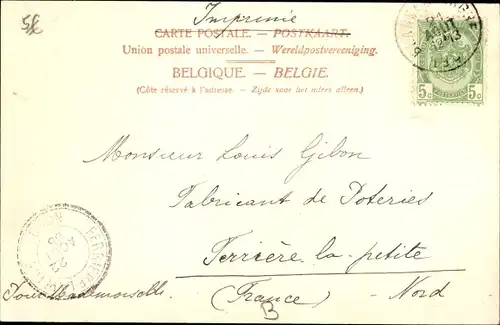 5k
Imprimé
CARTE POSTALE. — POSTKAART.
Union postale universelle. — Wereldpostvereeniging.
BELGIQUE. — BELGIE.
(Côté réservé à l'adresse. — Zijde voor het adres alleen.)
5c 5c
Monsieur Louis Gibon
Fabricant de Poteries
Ferrière la petite
(France) - Nord
Pour Mademoiselle
B